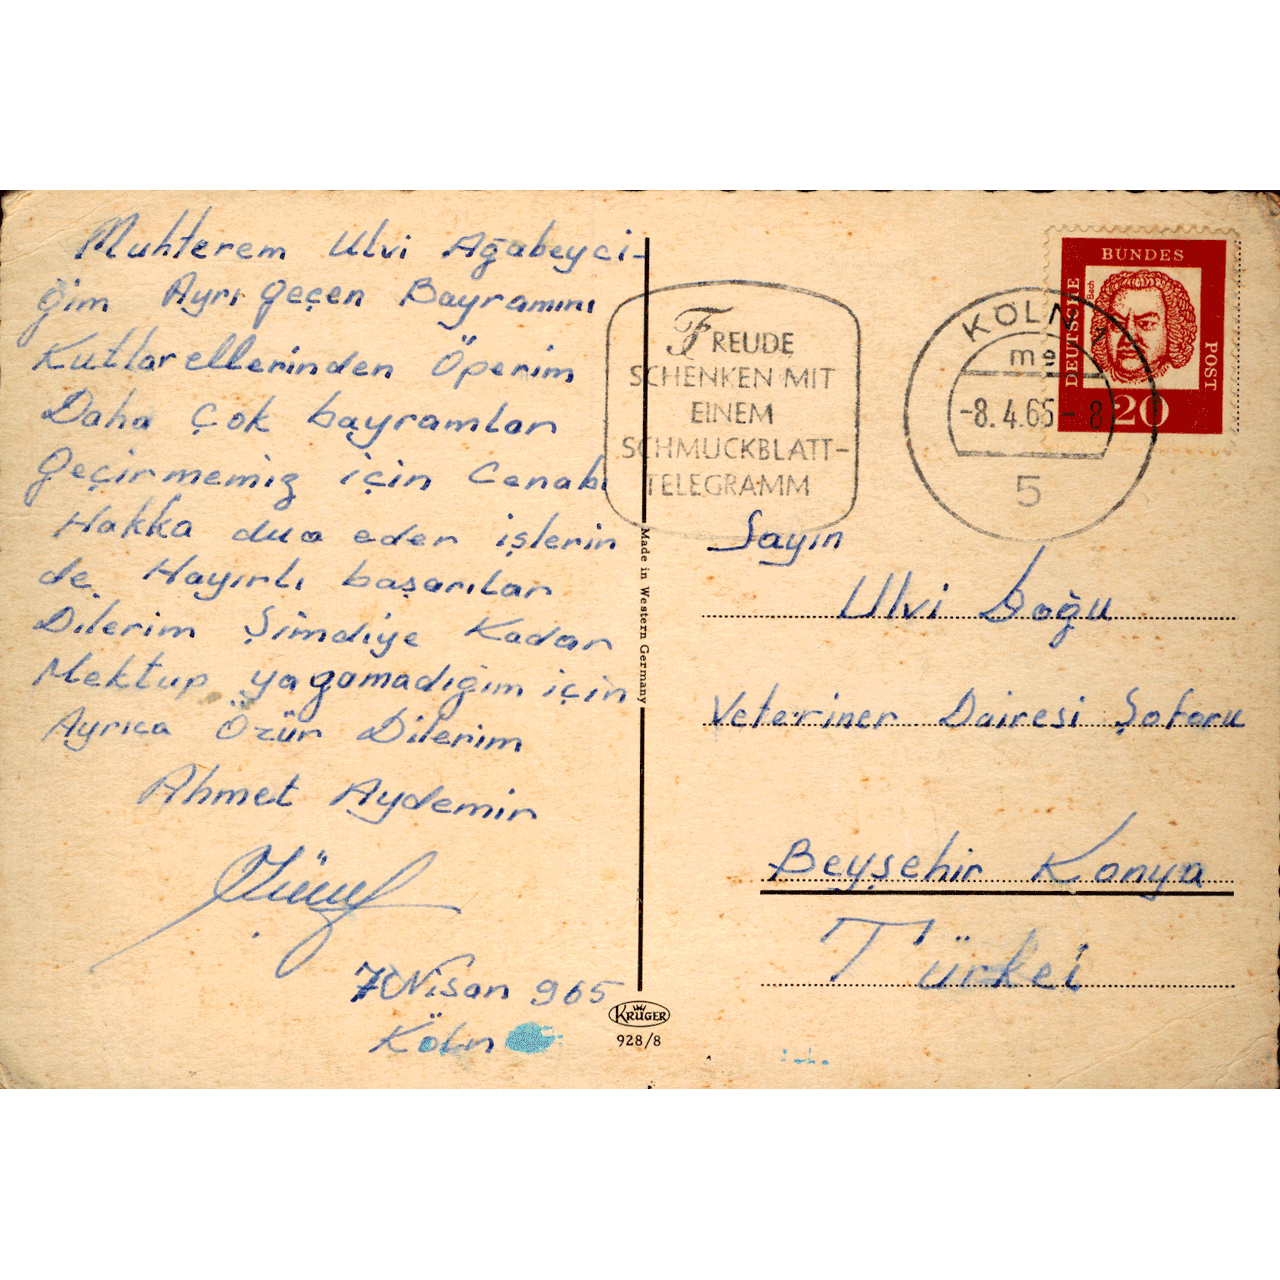 Muhterem Ulvi Ağabeyci-
ğim Ayrı geçen Bayramını
Kutlar ellerinden Öperim
Daha Çok bayramlar
Geçirmemiz için Cenabı
Hakka dua eder işlerin
de Hayırlı başarılar
Dilerim Şimdiye Kadar
Mektup yazamadığım için
Ayrıca Özür Dilerim
Ahmet Aydemir
7 Nisan 965
Köln
Made in Western Germany
KRÜGER
928/8
FREUDE
SCHENKEN MIT
EINEM
SCHMUCKBLATT-
TELEGRAMM
KÖLN 1
me
-8.4.65-8
5
DEUTSCHE
BUNDES
POST
Bach
20
Sayın
Ulvi Doğu
Veteriner Dairesi Şoforu
Beyşehir Konya
Türkei